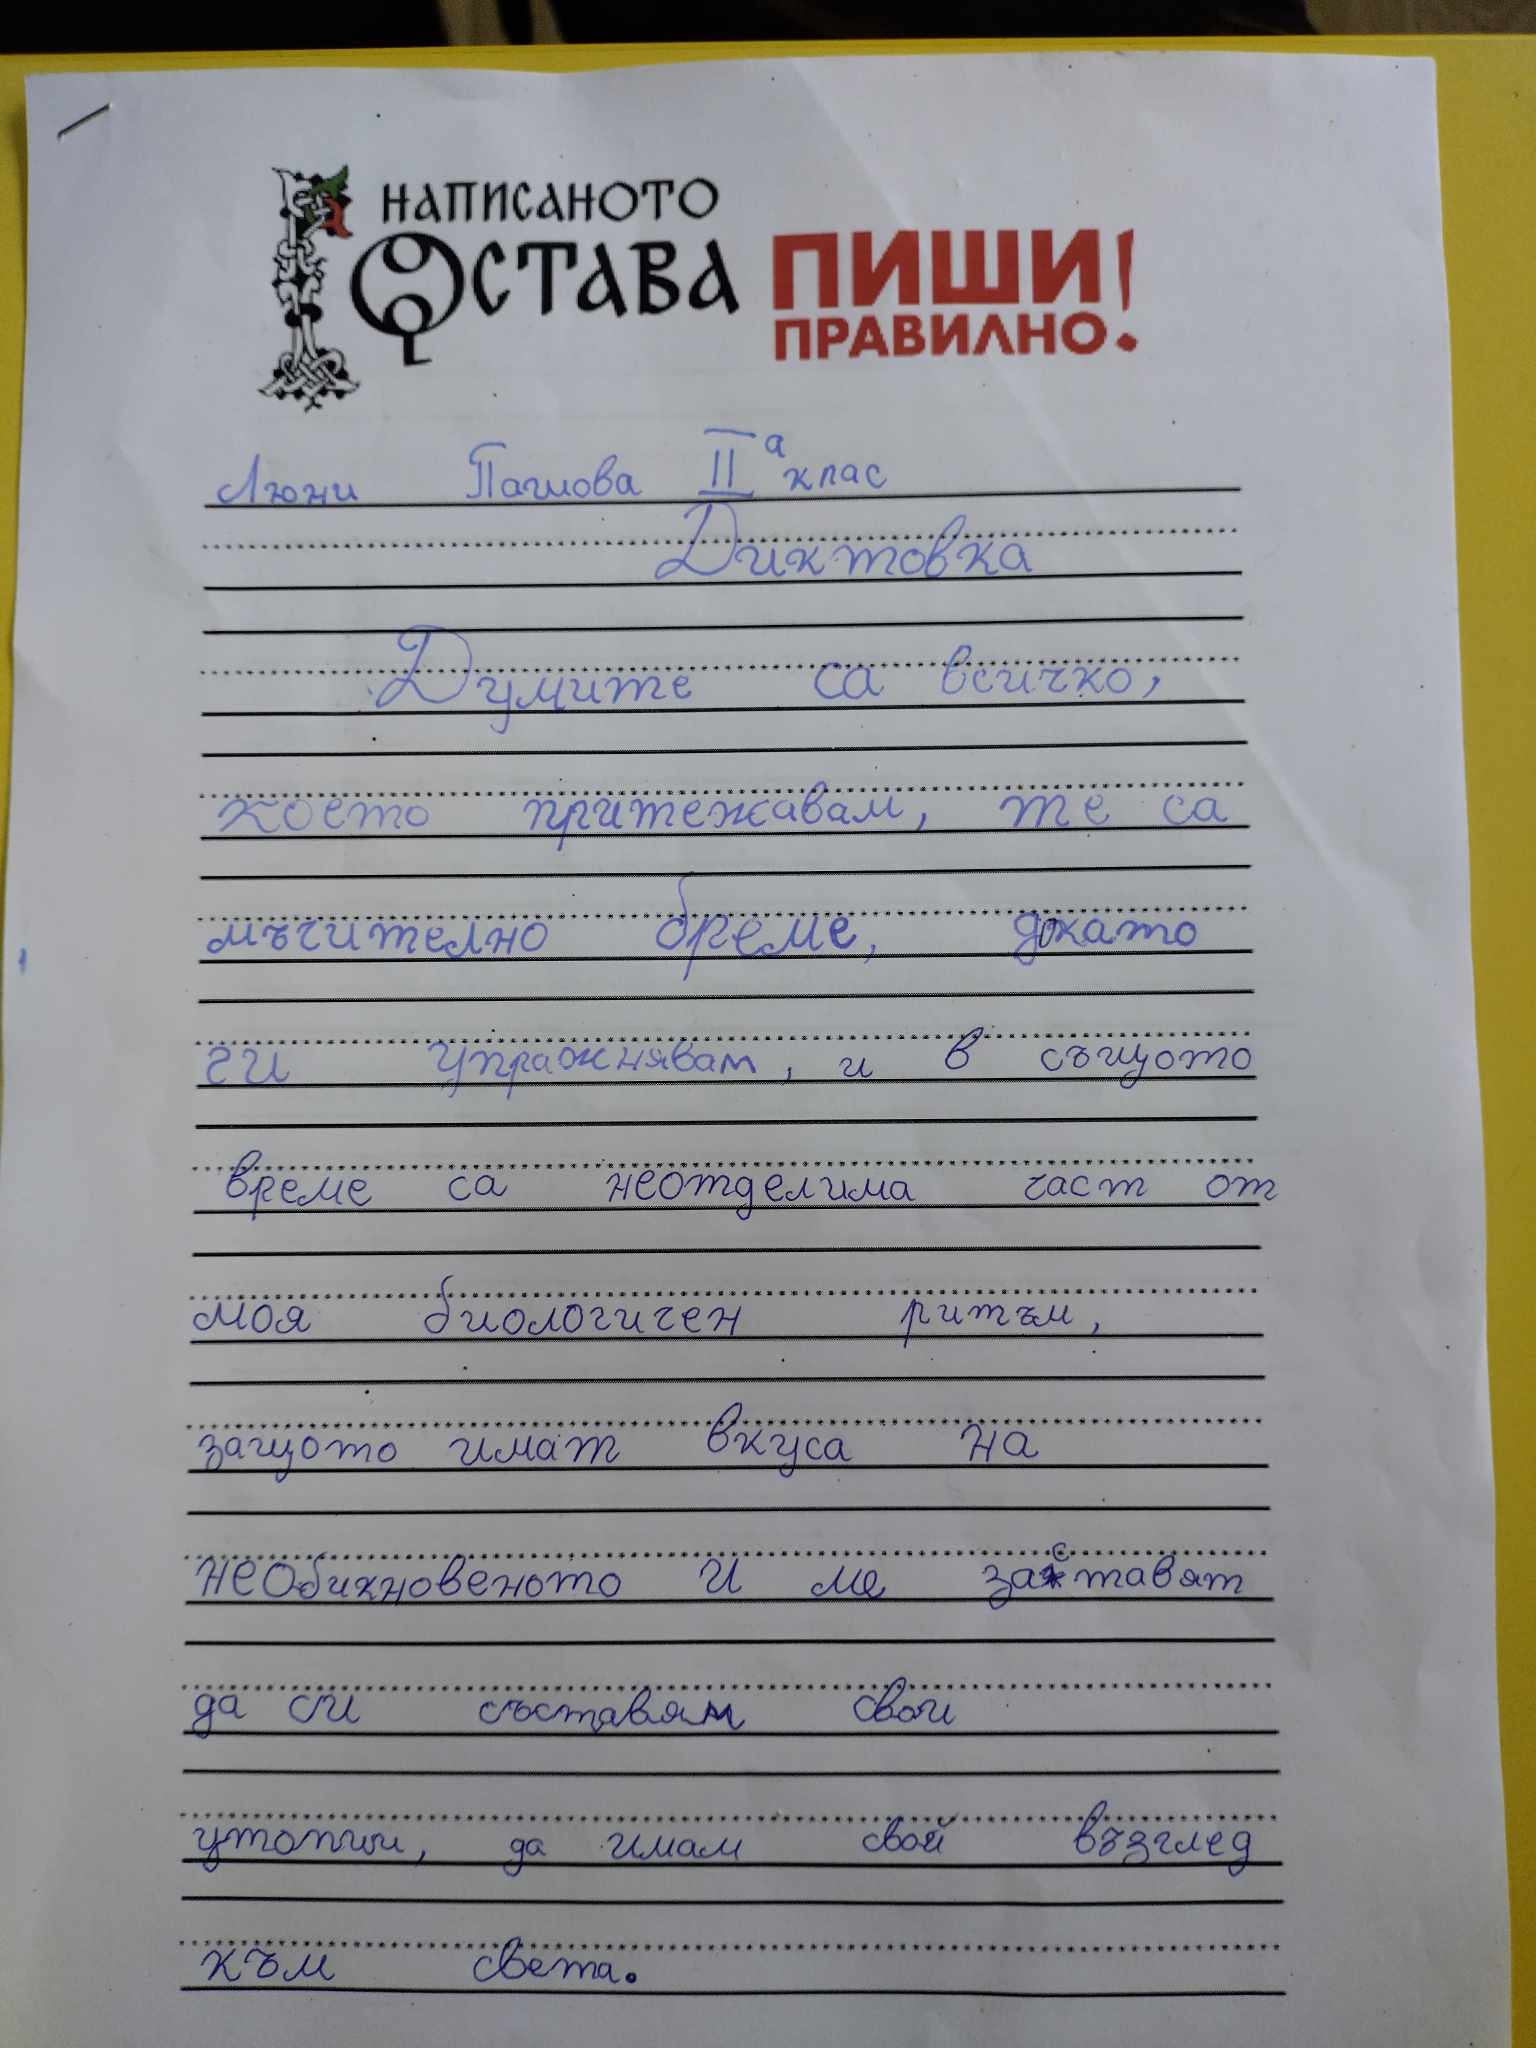 НАПИСАНОТО
ОСТАВА
ПИШИ!
ПРАВИЛНО
Люни Пашова II а клас
Диктовка
Думите са всичко,
което притежавам, те са
мъчително бреме, докато
ги упражнявам, и в същото
време са неотделима част от
моя биологичен ритъм,
защото имат вкуса на
необикновеното и ме заставят
да си съставям свои
утопии, да имам свой възглед
към света.